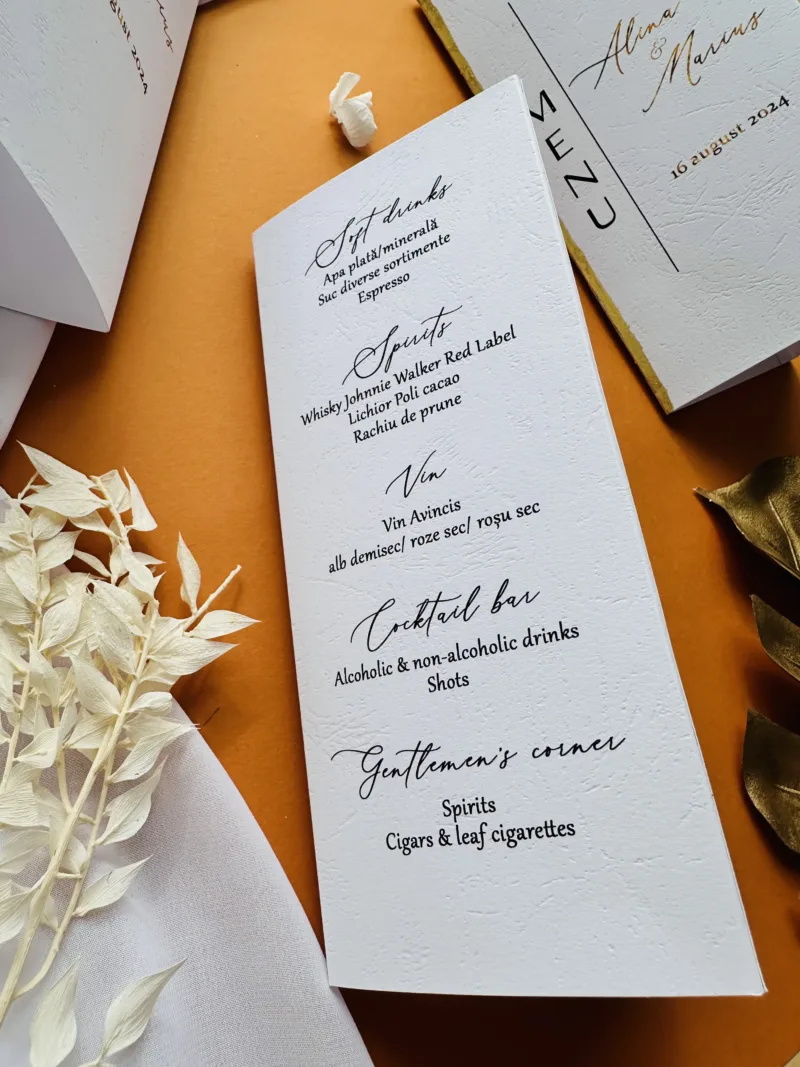 Soft drinks
Apa plată/minerală
Suc diverse sortimente
Espresso
Spirits
Whisky Johnnie Walker Red Label
Lichior Poli cacao
Rachiu de prune
Vin
Vin Avincis
alb demisec/ roze sec/ roșu sec
Cocktail bar
Alcoholic & non-alcoholic drinks
Shots
Gentlemen's corner
Spirits
Cigars & leaf cigarettes
MENU
Alina
&
Marius
16 august 2024
august 2024